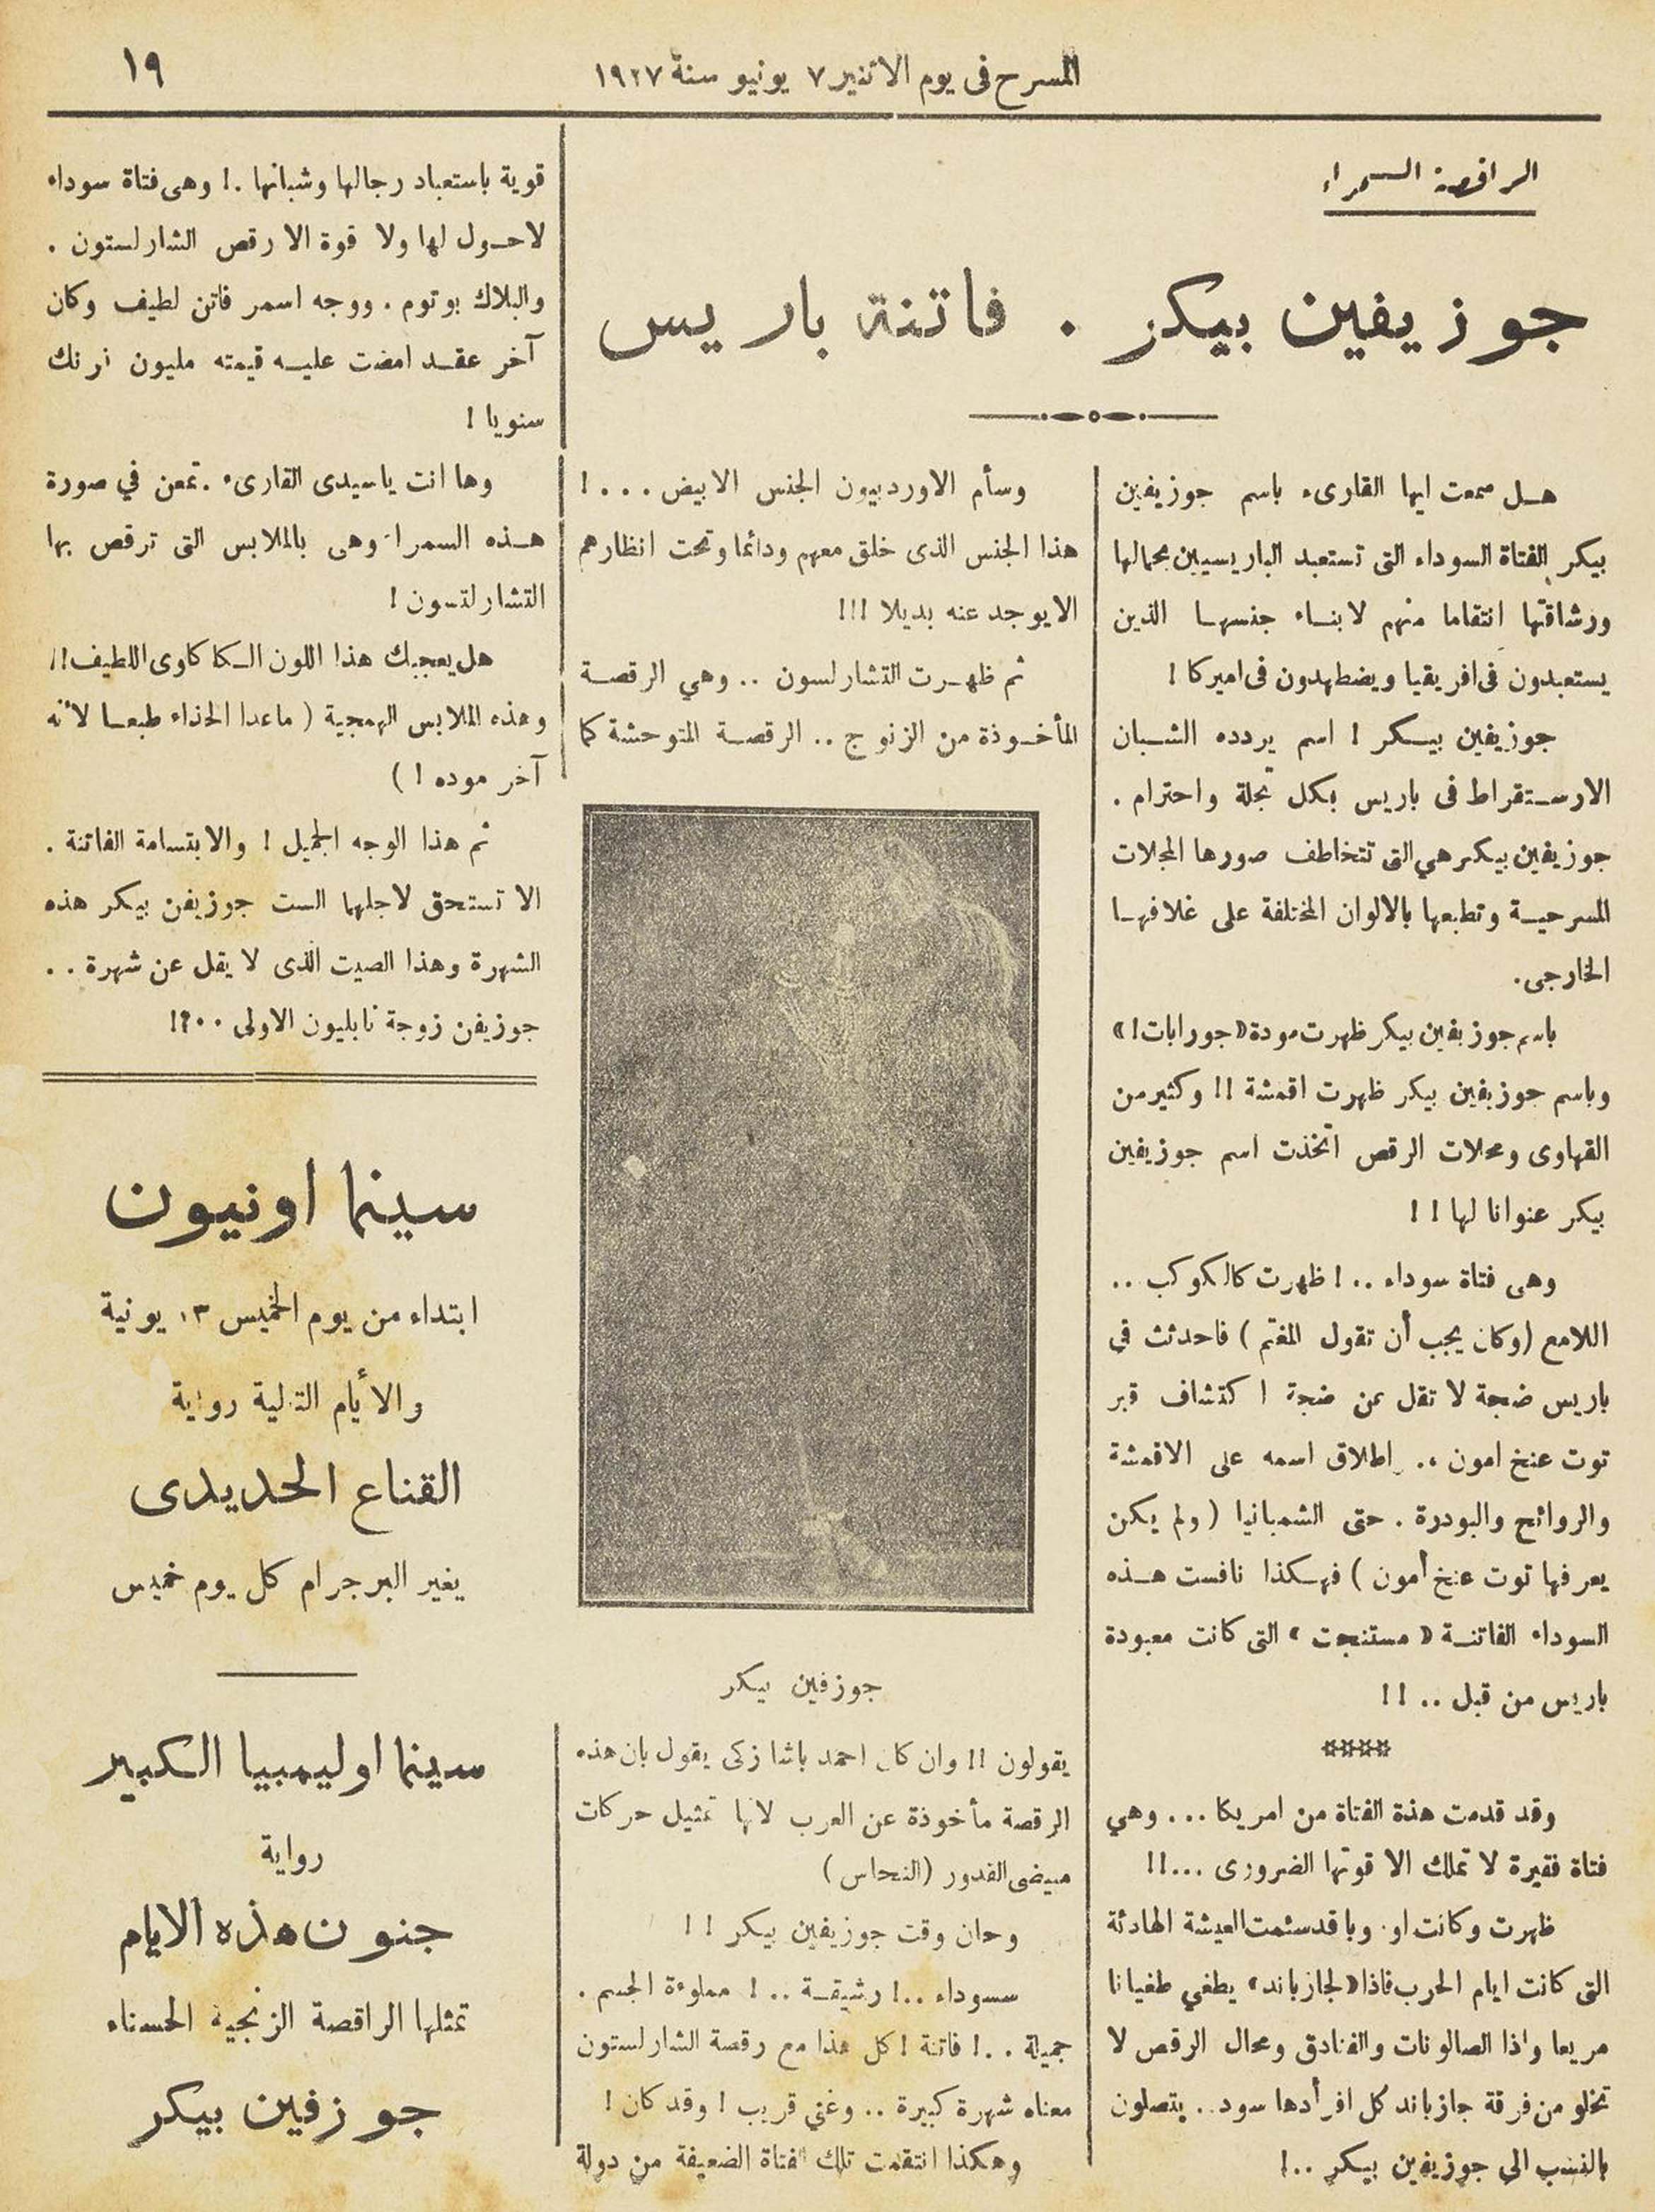 المسرح فى يوم الاثنين ٧ يونيو سنة ١٩٢٧
١٩
الراقصة السمراء
جوزيفين بيكر . فاتنة باريس
هل سمعت ايها القارىء باسم جوزيفين
بيكر الفتاة السوداء التى تستعبد الباريسيين بجمالها
ورشاقتها انتقاما منهم لابناء جنسها الذين
يستعبدون فى افريقيا ويضطهدون فى اميركا !
جوزيفين بيكر ! اسم يردده الشبان
الارستقراط فى باريس بكل تجلة واحترام .
جوزيفين بيكر هي التى تتخاطف صورها المجلات
المسرحية وتطبعها بالالوان المختلفة على غلافها
الخارجى.
باسم جوزيفين بيكر ظهرت مودة «جورابات!»
وباسم جوزيفين بيكر ظهرت اقمشة !! وكثير من
القهاوى ومحلات الرقص اتخذت اسم جوزيفين
بيكر عنوانا لها ! !
وهى فتاة سوداء ..! ظهرت كالكوكب ..
اللامع (وكان يجب أن تقول المغتم ) فاحدثت في
باريس ضجة لا تقل عن ضجة اكتشاف قبر
توت عنخ امون .. اطلاق اسمه على الاقمشة
والروائح والبودرة . حتى الشمبانيا (ولم يكن
يعرفها توت عنخ أمون ) فهكذا نافست هذه
السوداء الفاتنة « مستنجت » التى كانت معبودة
باريس من قبل .. !!
****
وقد قدمت هذة الفتاة من امريكا ... وهي
فتاة فقيرة لا تملك الا قوتها الضرورى ...!!
ظهرت وكانت او وبا قد سئمت العيشة الهادئة
التى كانت ايام الحرب فاذا «لجاز باند» يطغي طغيانا
مريعا واذا الصالونات والفنادق ومحال الرقص لا
تخلو من فرقة جاز باند كل افرأدها سود .. يتصلون
بالنسب الي جوزيفين بيكر ..!
وسأم الاوردبيون الجنس الابيض ...!
هذا الجنس الذى خلق معهم ودائما وتحت انظارهم
الايوجد عنه بديلا !!!
ثم ظهرت التشارلسون .. وهي الرقصة
المأخوذة من الزنوج .. الرقصة المتوحشة كما
جوزفين بيكر
يقولون !! وان كان احمد باشا زكى يقول بان هذه
الرقصة مأخوذة عن العرب لانها تمثيل حركات
مبيضى القدور (النحاس)
وحان وقت جوزيفين بيكر ! !
سسوداء ..! رشيقة .. ! مملوءة الجسم .
جميلة . .! فاتنة ! كل هذا مع رقصة الشارلستون
معناه شهرة كبيرة .. وغني قريب ! وقد كان !
وهكذا انتقمت تلك الفتاة الضعيفة من دولة
قوية باستعباد رجالها وشبانها .! وهى فتاة سوداء
لاحول لها ولا قوة الا رقص الشارلستون .
والبلاك بوتوم . ووجه اسمر فاتن لطيف وكان
آخر عقد امضت عليه قيمته مليون فرنك
سنويا !
وها انت ياسيدى القارىء .تمعن في صورة
هذه السمراء وهى بالملابس التى ترقص بها
التشارلتسون !
هل يعجبك هذا اللون الكاكاوى اللطيف !!
وهذه الملابس الهمجية ( ماعدا الحذاء طبعا لأنه
آخر موده ! )
ثم هذا الوجه الجميل ! والابتسامة الفاتنة .
الا تستحق لاجلهما الست جوزيفن بيكر هذه
الشهرة وهذا الصيت الذى لا يقل عن شهرة . .
جوزيفن زوجة نابليون الاولى ..؟!
سينما اونيون
ابتداء من يوم الخميس ١٣ يونية
والأيام التالية رواية
القناع الحديدى
يغير البرجرام كل يوم خميس
سينما اوليمبيا الكبير
رواية
جنون هذه الايام
تمثلها الراقصة الزنجية الحسناء
جوزفين بيكر